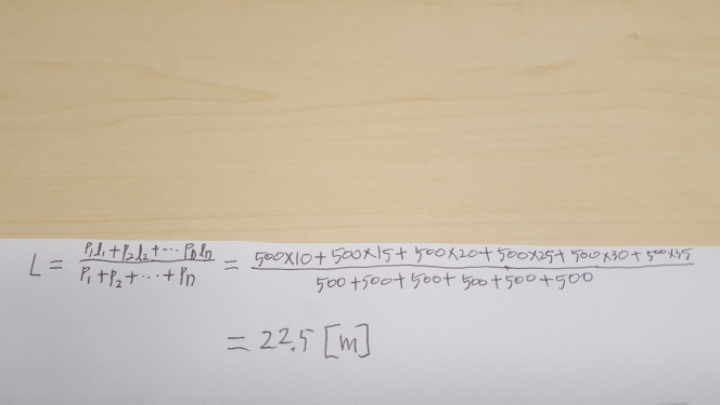 L = \frac{P_1l_1+P_2l_2+\cdots P_nl_n}{P_1+P_2+\cdots+P_n} = \frac{500×10+500×15+500×20+500×25+500×30+500×35}{500+500+500+500+500+500}
= 22.5 [m]